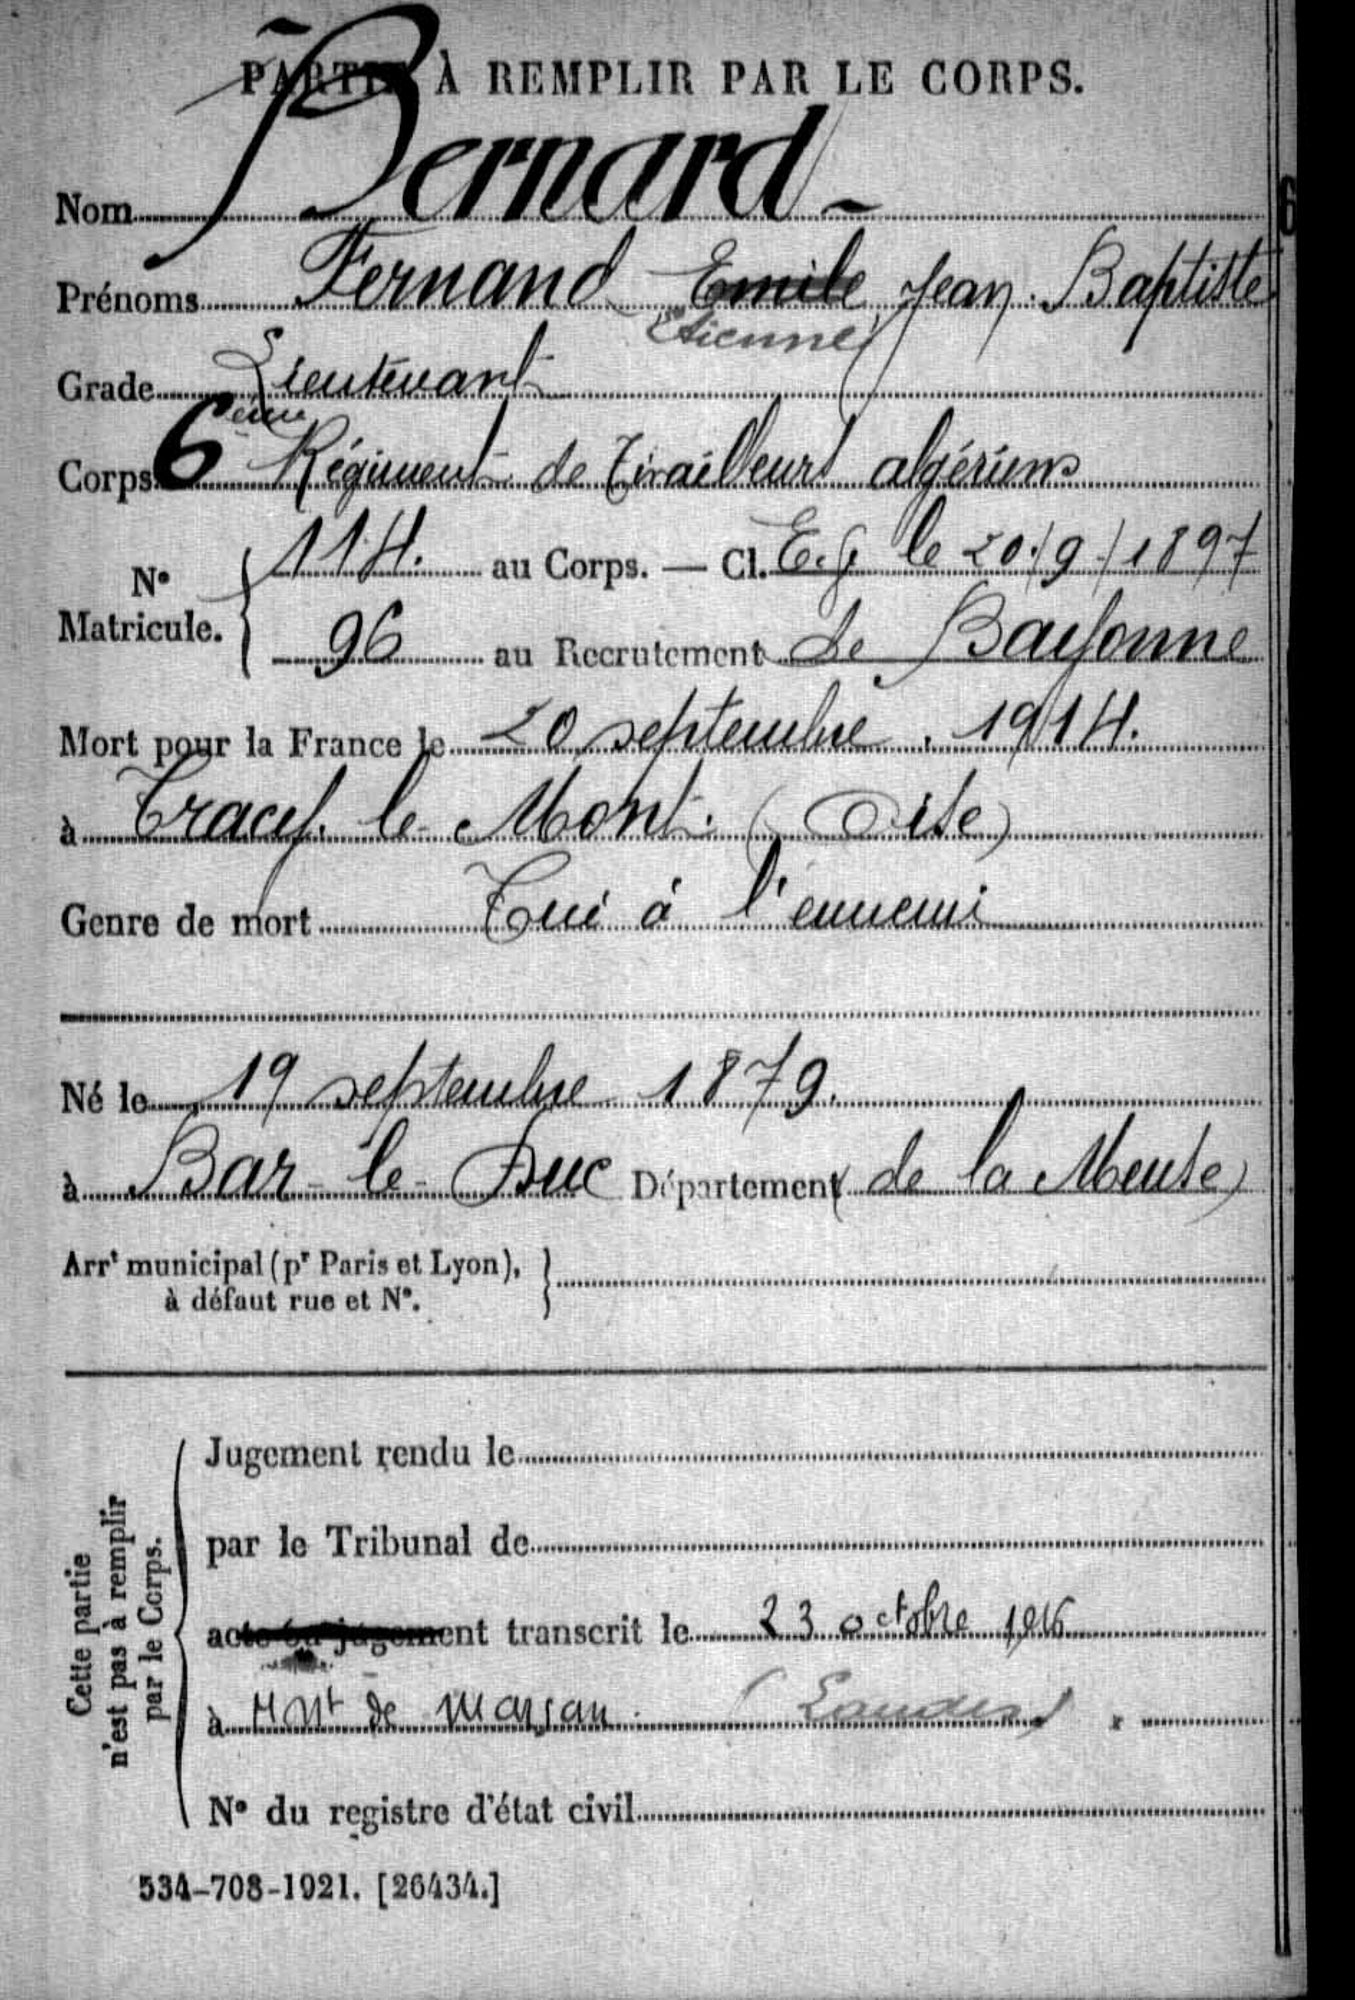 PARTIE À REMPLIR PAR LE CORPS.
Nom Bernard -
Prénoms Fernand Emile Jean Baptiste
Etienne
Grade Lieutenant
Corps 6eme Régiment de Tirailleurs algériens
N° Matricule. { 114. au Corps. — Cl. E.V. le 20/9/1897
96 au Recrutement de Bayonne
Mort pour la France le 20 septembre 1914.
à Tracy le Mont. (Oise)
Genre de mort Tué à l'ennemi
Né le 19 septembre 1879.
à Bar-le-Duc Département (de la Meuse)
Arrt municipal (pr Paris et Lyon), }
à défaut rue et N°.
Cette partie
n'est pas à remplir
par le Corps.
Jugement rendu le
par le Tribunal de
acte ou jugement transcrit le 23 octobre 1916
à Mont de Marsan. (Landes)
N° du registre d'état civil
534-708-1921. [26434.]
6